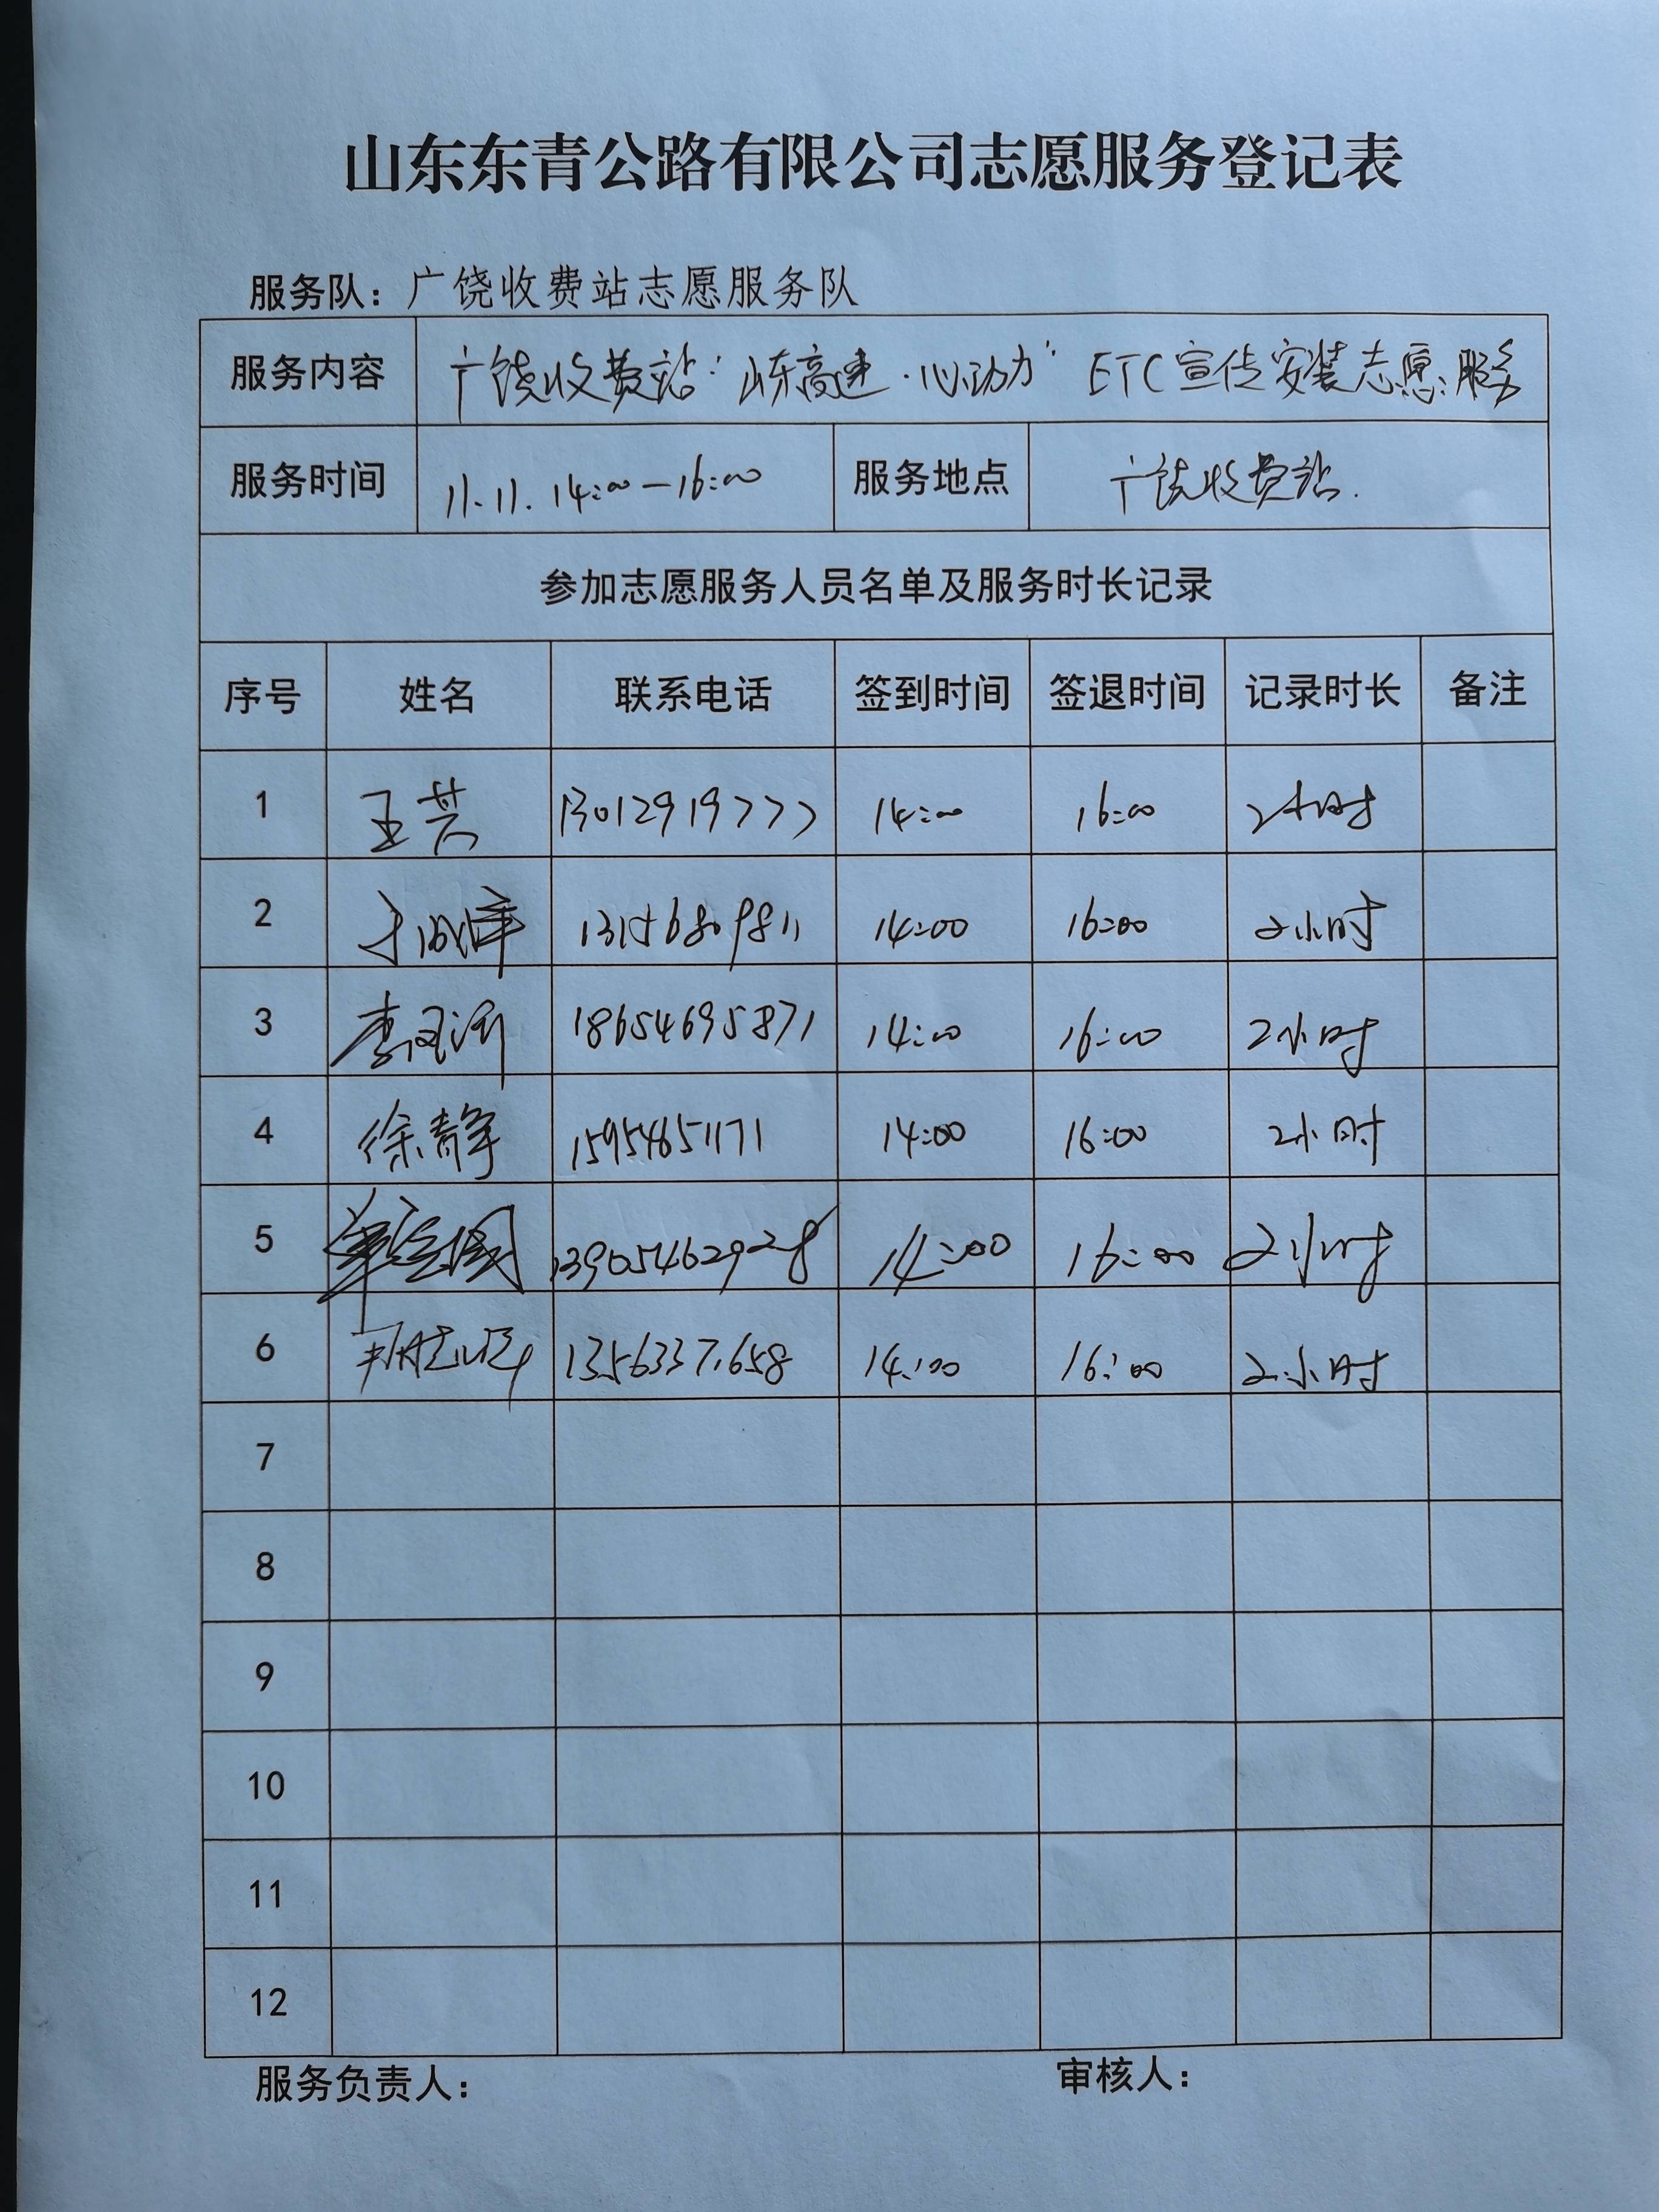 山东东青公路有限公司志愿服务登记表
服务队：广饶收费站志愿服务队
服务内容 广饶收费站“山东高速·心动力”ETC宣传安装志愿服务
服务时间 11.11. 14:00—16:00 服务地点 广饶收费站.
参加志愿服务人员名单及服务时长记录
序号 姓名 联系电话 签到时间 签退时间 记录时长 备注
1 王芸 13012919777 14:00 16:00 2小时
2 14:00 16:00 2小时
3 18654695871 14:00 16:00 2小时
4 徐静 15954651171 14:00 16:00 2小时
5 13905462928 14:00 16:00 2小时
6 14:00 16:00 2小时
7
8
9
10
11
12
服务负责人： 审核人：